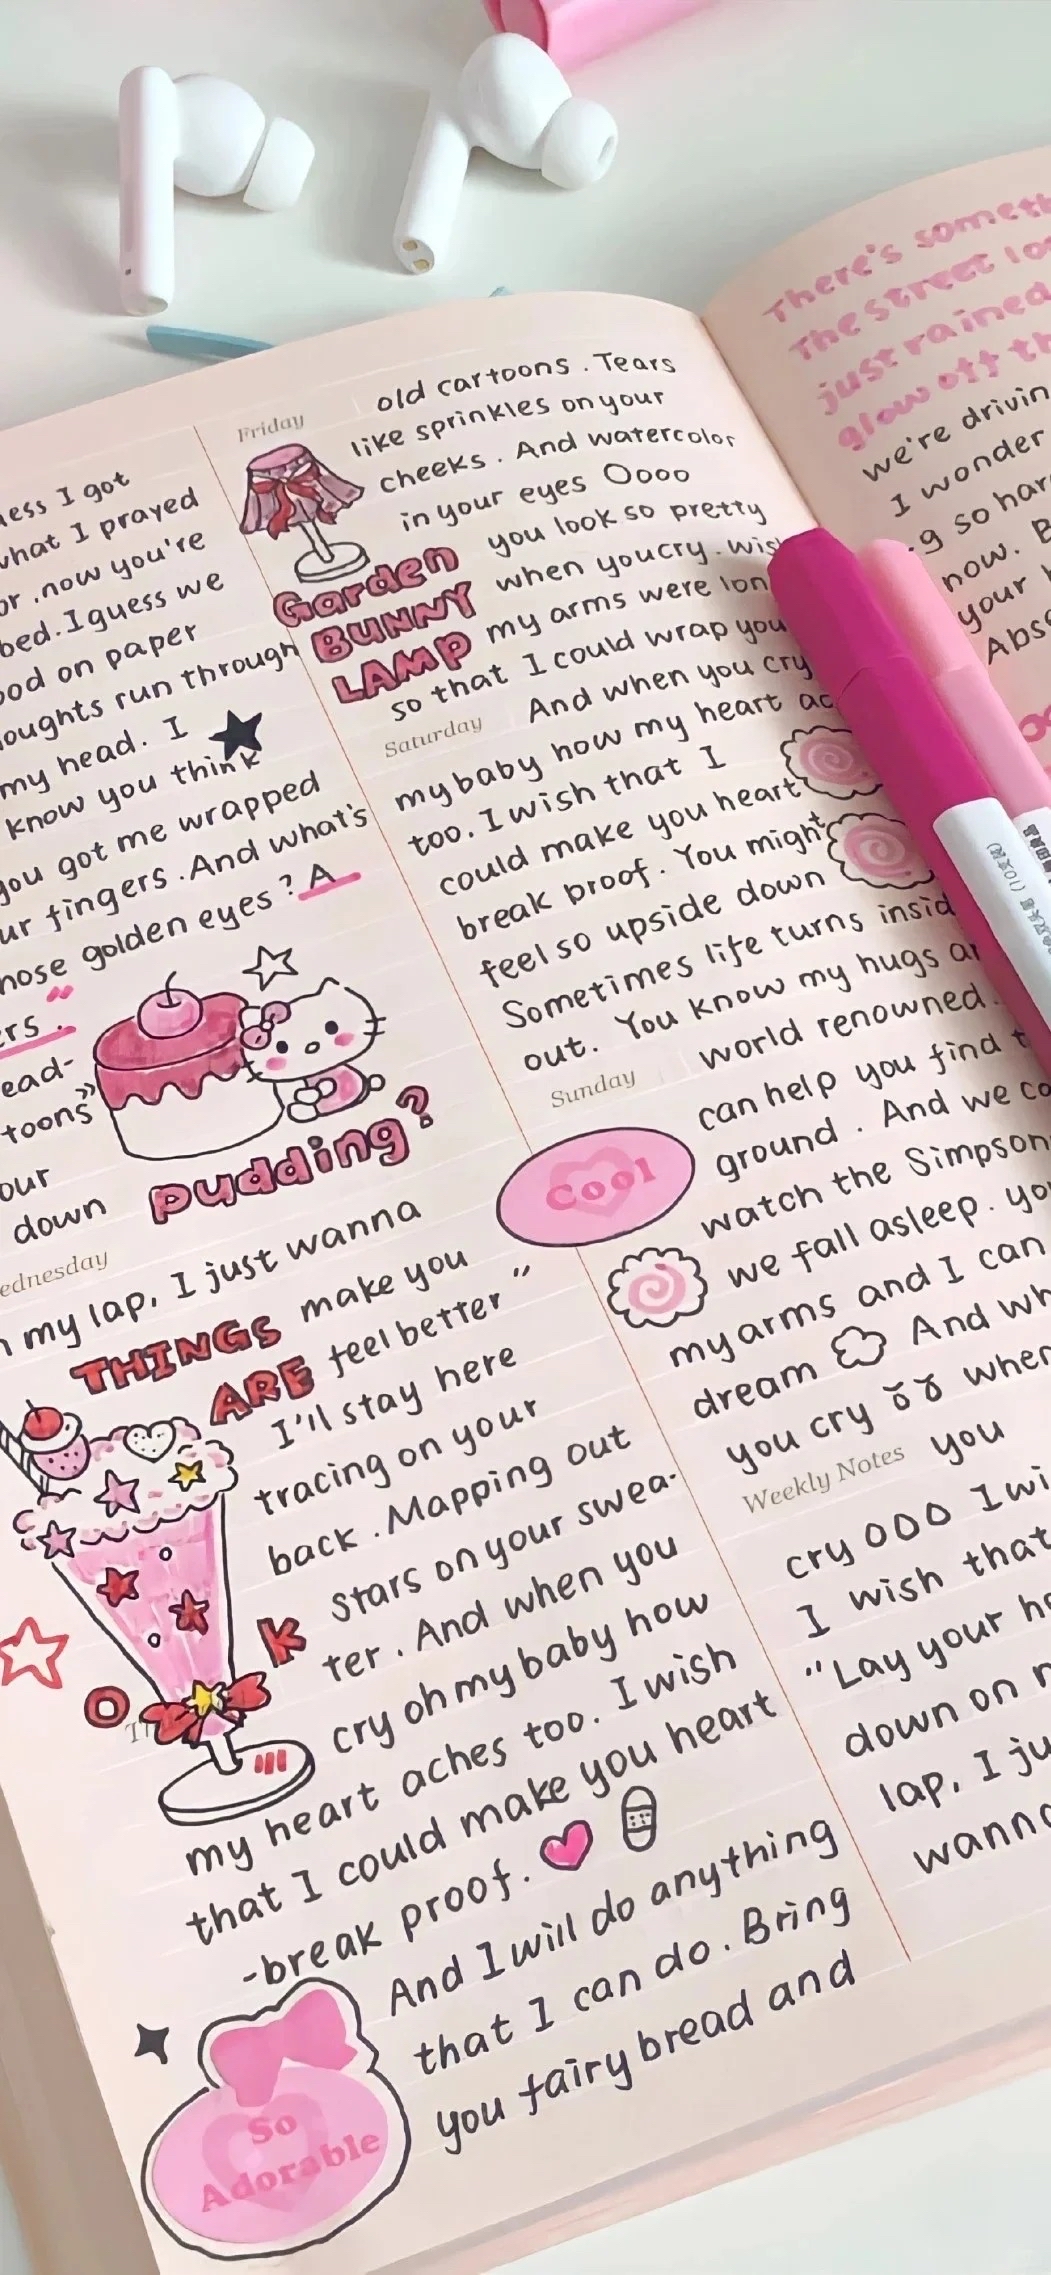 I got
what I prayed
now you're
bed. I guess we
on paper
run through
my head. I
know you think
you got me wrapped
fingers. And what's
golden eyes? A
down
Wednesday
my lap, I just wanna
THINGS make you
ARE feel better"
I'll stay here
tracing on your
back. Mapping out
stars on your swea-
K
ter. And when you
O
cry oh my baby how
my heart aches too. I wish
that I could make you heart
-break proof.
And I will do anything
that I can do. Bring
you fairy bread and
So
Adorable
pudding?
Friday
old cartoons. Tears
like sprinkles on your
cheeks. And watercolor
in your eyes Oooo
you look so pretty
when you cry. wish
my arms were
so that I could wrap you
And when you cry
Garden
BUNNY
LAMP
Saturday
my baby how my heart
too. I wish that I
could make you heart
break proof. You might
feel so upside down
Sometimes life turns
out. You know my hugs
world renowned.
Sunday
can help you find
ground. And we
watch the
Cool
we fall asleep.
my arms and I can
dream And
you cry when
Weekly Notes
you
cry OOO I
I wish that
"Lay your
down on
lap, I
There's
The street
just rained
glow off
we're
I wonder
so
now.
your